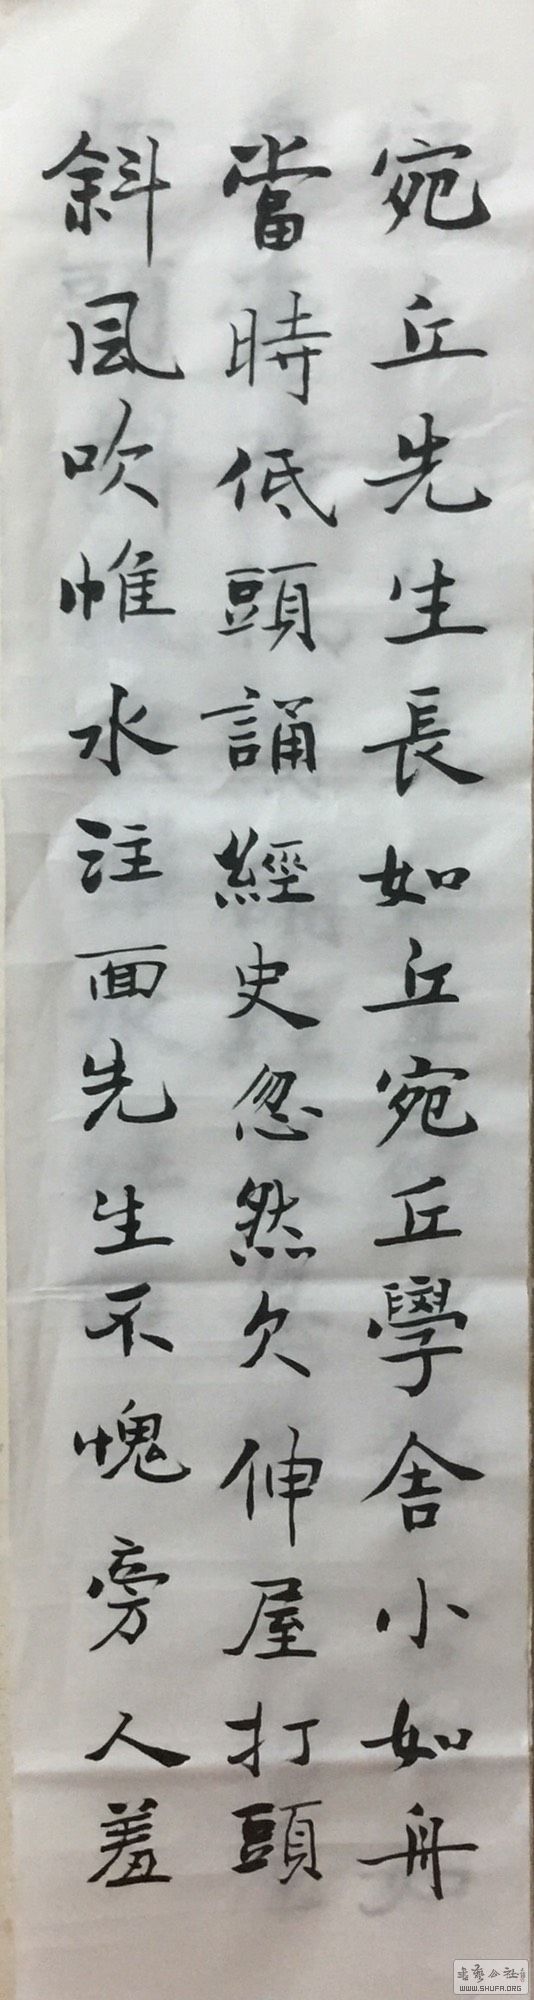 宛丘先生長如丘宛丘學舍小如舟
當時低頭誦經史忽然欠伸屋打頭
斜風吹帷水注面先生不愧旁人羞
書藝公社
WWW.SHUFA.ORG